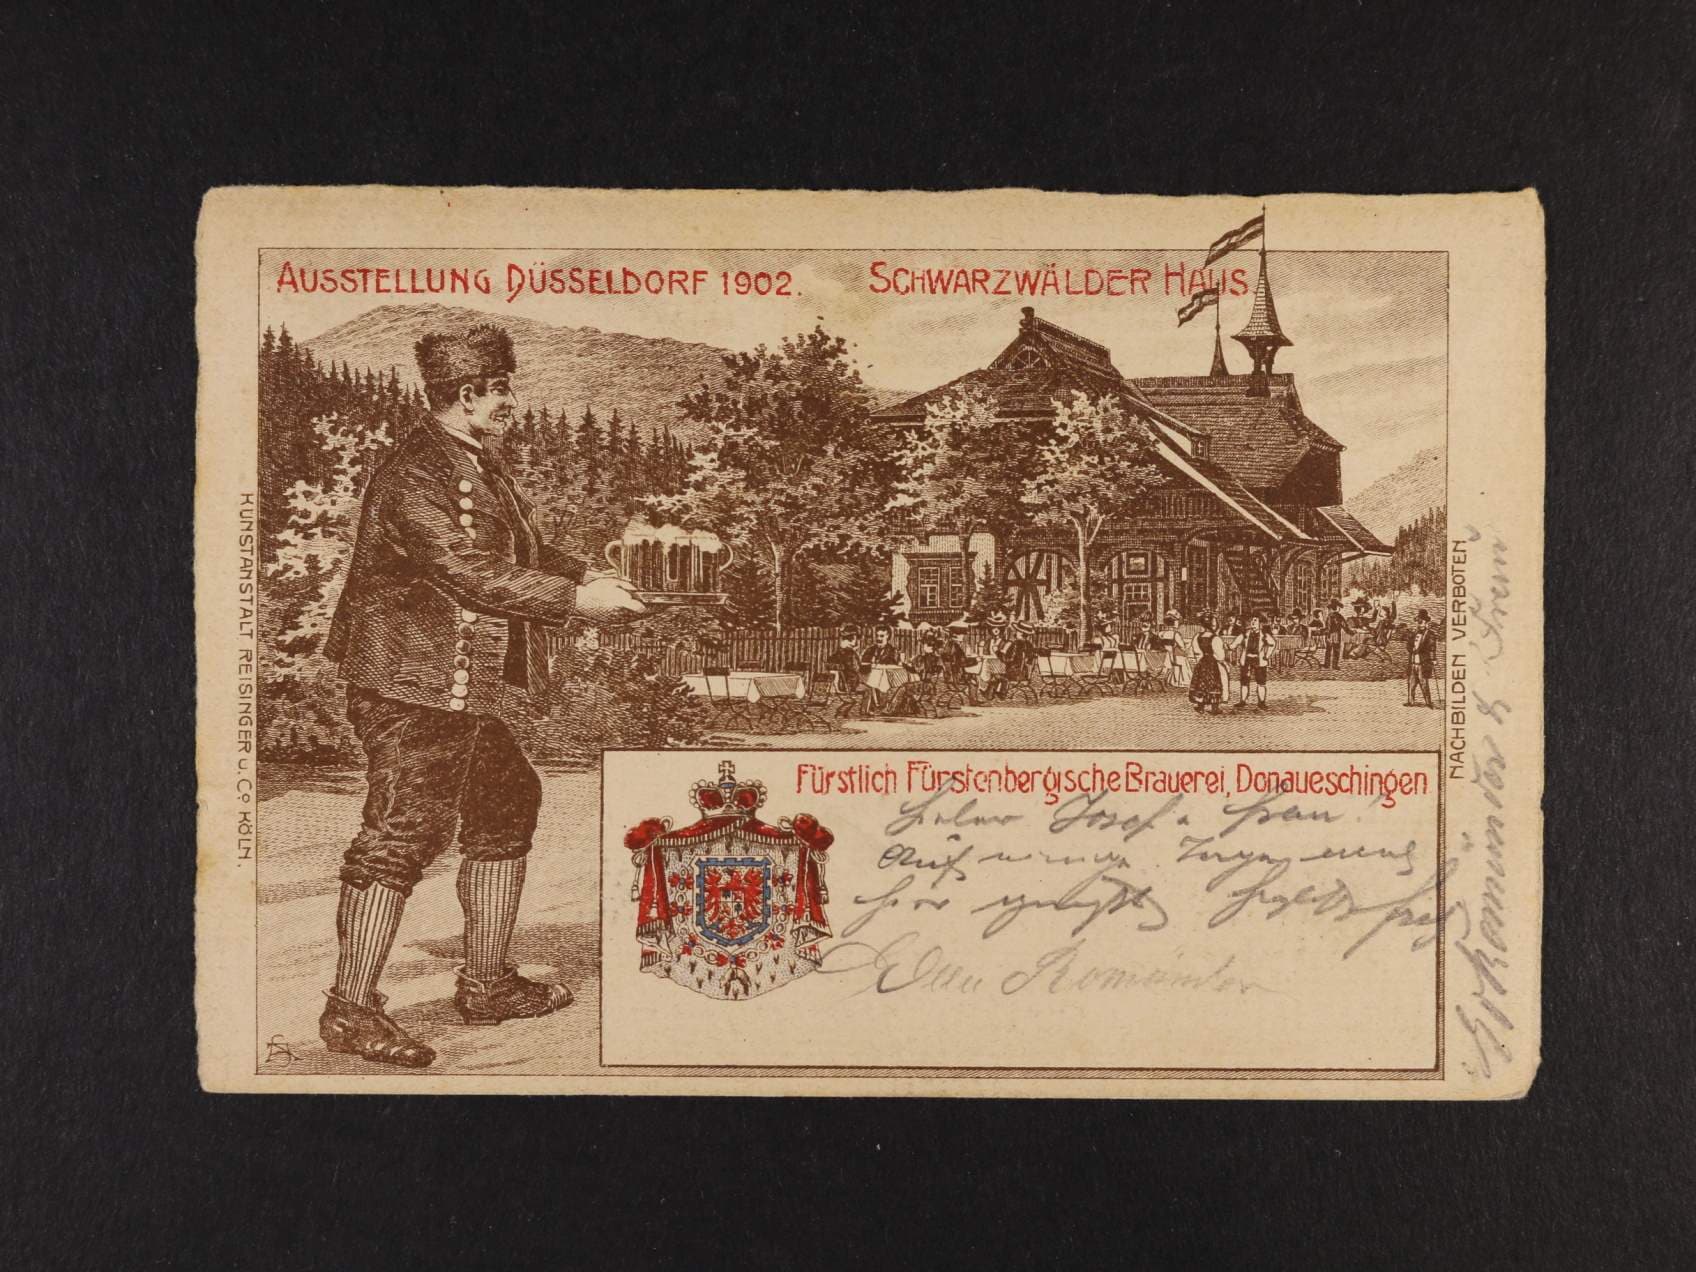 AUSSTELLUNG DÜSSELDORF 1902. SCHWARZWÄLDER HAUS.
KUNSTANSTALT REISINGER U. Co KÖLN.
NACHBILDEN VERBOTEN
Fürstlich Fürstenbergische Brauerei, Donaueschingen
Lieber Josef u Frau!
Auf einige Tage
hier
Romünder
Romünder & Frau